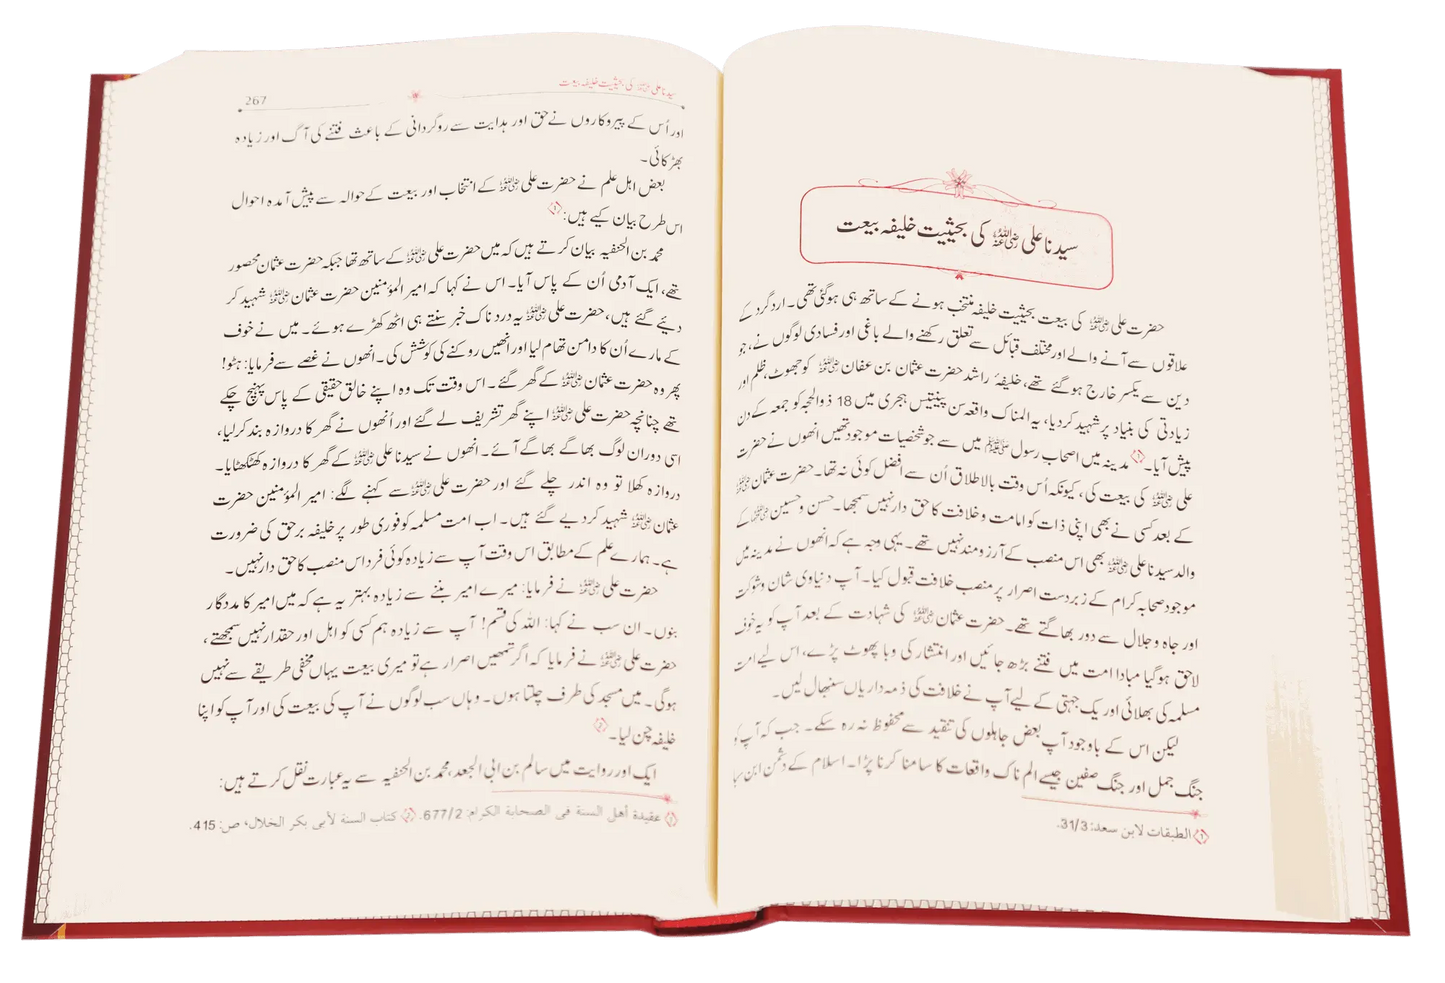 سیدنا علی رضی اللہ عنہ کی بحیثیت خلیفہ بیعت
حضرت علی رضی اللہ عنہ کی بیعت بحیثیت خلیفہ منتخب ہونے کے ساتھ ہی ہو گئی تھی۔ ارد گرد کے
علاقوں سے آنے والے اور مختلف قبائل سے تعلق رکھنے والے باغی اور فسادی لوگوں نے، جو
دین سے یکسر خارج ہو گئے تھے، خلیفۂ راشد حضرت عثمان بن عفان رضی اللہ عنہ کو جھوٹ، ظلم اور
زیادتی کی بنیاد پر شہید کر دیا، یہ المناک واقعہ سن پینتیس ہجری میں 18 ذوالحجہ کو جمعہ کے دن
پیش آیا۔ مدینہ میں اصحاب رسول ﷺ میں سے جو شخصیات موجود تھیں انھوں نے حضرت
علی رضی اللہ عنہ کی بیعت کی، کیونکہ اُس وقت بالاطلاق اُن سے افضل کوئی نہ تھا۔ حضرت عثمان رضی اللہ عنہ
کے بعد کسی نے بھی اپنی ذات کو امامت و خلافت کا حق دار نہیں سمجھا۔ حسن و حسین رضی اللہ عنہما کے
والد سیدنا علی رضی اللہ عنہ بھی اس منصب کے آرزو مند نہیں تھے۔ یہی وجہ ہے کہ انھوں نے مدینہ میں
موجود صحابہ کرام کے زبردست اصرار پر منصب خلافت قبول کیا۔ آپ دنیاوی شان و شوکت
اور جاہ و جلال سے دور بھاگتے تھے۔ حضرت عثمان رضی اللہ عنہ کی شہادت کے بعد آپ کو یہ خوف
لاحق ہو گیا مبادا امت میں فتنے بڑھ جائیں اور انتشار کی وبا پھوٹ پڑے، اس لیے امت
مسلمہ کی بھلائی اور یک جہتی کے لیے آپ نے خلافت کی ذمہ داریاں سنبھال لیں۔
لیکن اس کے باوجود آپ بعض جاہلوں کی تنقید سے محفوظ نہ رہ سکے۔ جب کہ آپ کو
جنگ جمل اور جنگ صفین جیسے الم ناک واقعات کا سامنا کرنا پڑا۔ اسلام کے دشمن ابن سبا
الطبقات لابن سعد: 31/3.
سیدنا علی رضی اللہ عنہ کی بحیثیت خلیفہ بیعت 267
اور اُس کے پیروکاروں نے حق اور ہدایت سے روگردانی کے باعث فتنے کی آگ اور زیادہ
بھڑکائی۔
بعض اہل علم نے حضرت علی رضی اللہ عنہ کے انتخاب اور بیعت کے حوالہ سے پیش آمدہ احوال
اس طرح بیان کیے ہیں:
محمد بن الحنفیہ بیان کرتے ہیں کہ میں حضرت علی رضی اللہ عنہ کے ساتھ تھا جبکہ حضرت عثمان محصور
تھے، ایک آدمی اُن کے پاس آیا۔ اس نے کہا کہ امیر المؤمنین حضرت عثمان رضی اللہ عنہ شہید کر
دیئے گئے ہیں، حضرت علی رضی اللہ عنہ یہ درد ناک خبر سنتے ہی اٹھ کھڑے ہوئے۔ میں نے خوف
کے مارے اُن کا دامن تھام لیا اور انھیں روکنے کی کوشش کی۔ انھوں نے غصے سے فرمایا: ہٹو!
پھر وہ حضرت عثمان رضی اللہ عنہ کے گھر گئے۔ اس وقت تک وہ اپنے خالق حقیقی کے پاس پہنچ چکے
تھے چنانچہ حضرت علی رضی اللہ عنہ اپنے گھر تشریف لے گئے اور اُنھوں نے گھر کا دروازہ بند کر لیا،
اسی دوران لوگ بھاگے بھاگے آئے۔ انھوں نے سیدنا علی رضی اللہ عنہ کے گھر کا دروازہ کھٹکھٹایا۔
دروازہ کھلا تو وہ اندر چلے گئے اور حضرت علی رضی اللہ عنہ سے کہنے لگے: امیر المؤمنین حضرت
عثمان رضی اللہ عنہ شہید کر دیے گئے ہیں۔ اب امت مسلمہ کو فوری طور پر خلیفہ برحق کی ضرورت
ہے۔ ہمارے علم کے مطابق اس وقت آپ سے زیادہ کوئی فرد اس منصب کا حق دار نہیں۔
حضرت علی رضی اللہ عنہ نے فرمایا: میرے امیر بننے سے زیادہ بہتر یہ ہے کہ میں امیر کا مددگار
بنوں۔ ان سب نے کہا: اللہ کی قسم! آپ سے زیادہ ہم کسی کو اہل اور حقدار نہیں سمجھتے،
حضرت علی رضی اللہ عنہ نے فرمایا کہ اگر تمھیں اصرار ہے تو میری بیعت یہاں مخفی طریقے سے نہیں
ہو گی۔ میں مسجد کی طرف چلتا ہوں۔ وہاں سب لوگوں نے آپ کی بیعت کی اور آپ کو اپنا
خلیفہ چن لیا۔
ایک اور روایت میں سالم بن ابی الجعد، محمد بن الحنفیہ سے یہ عبارت نقل کرتے ہیں:
عقيدة أهل السنة في الصحابة الكرام: 677/2. كتاب السنة لأبي بكر الخلال، ص: 415.